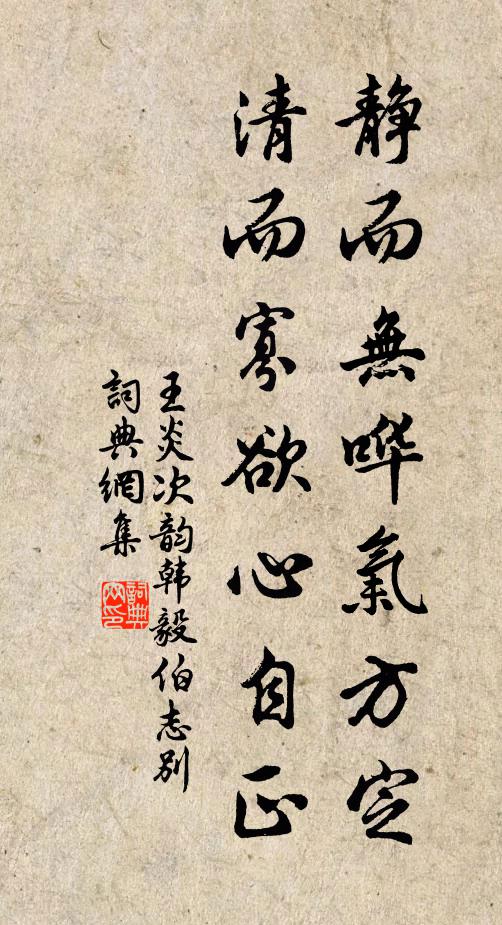 静而無哗氣方定
清而寡欲心自正
王炎次韵韩毅伯志别
詞典網集
詞典網印